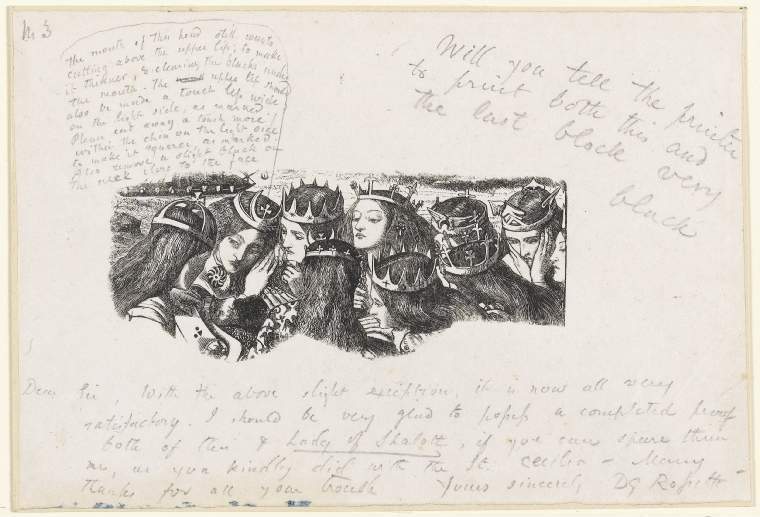 No 3
The mouth of this head still wants
cutting above the upper lip, to make
it thinner, & clearing the blacks under
the mouth. The upper lip should
also be made a touch less wide
on the light side, as marked
Please cut away a touch more
within the chin on the light side
to make it squarer, as marked
Also remove a slight black on
the neck close to the face
Will you tell the printer
to print both this and
the last block very
black
Dear Sir, With the above slight exception, it is now all very
satisfactory. I should be very glad to possess a completed proof
both of this & Lady of Shalott, if you can spare them
me, as you kindly did with the St. Cecilia – Many
thanks for all your trouble Yours sincerely DG Rossetti